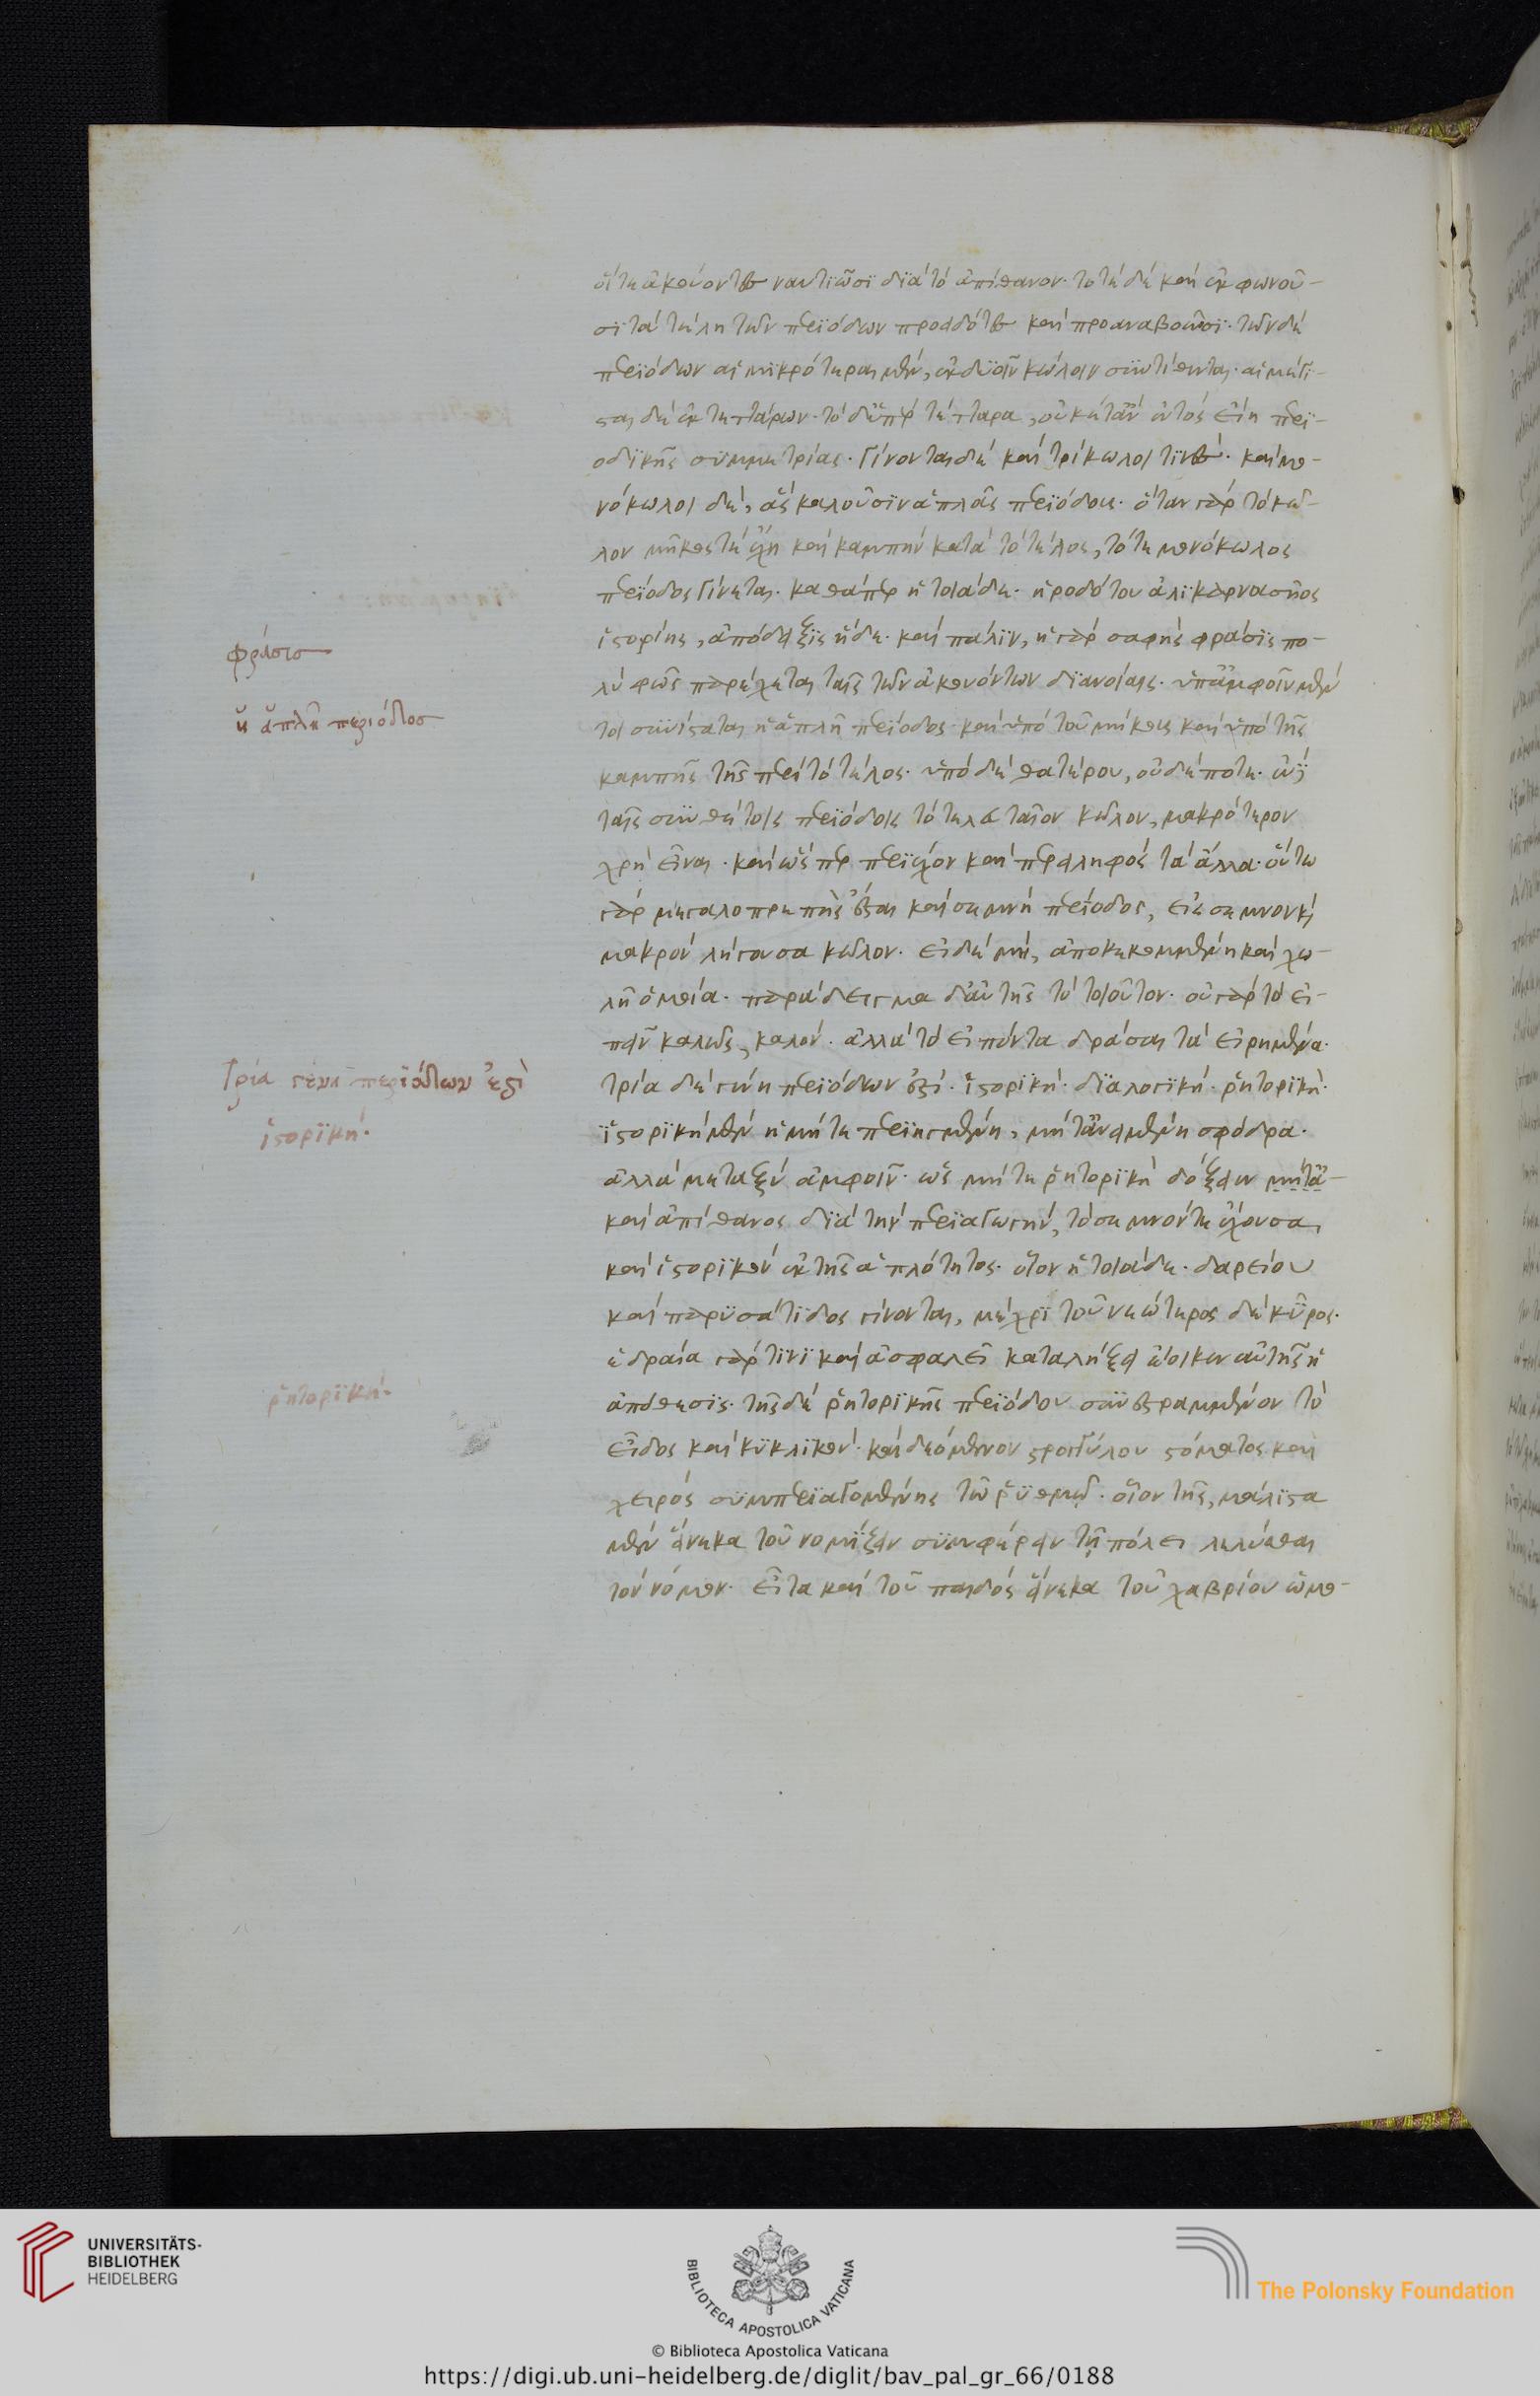 οἵτε ἀκούοντες ναυτιῶσι διὰ τὸ ἀπίθανον· τοτὲ δὲ καὶ ἐκφωνοῦ-
σι τὰ τέλη τῶν περιόδων προειδότες καὶ προαναβοῶσι· τῶν δὲ
περιόδων αἱ μικρότεραι μὲν, ἐκ δυοῖν κώλοιν συντίθενται· αἱ μέγι-
σται δὲ ἐκ τεττάρων· τὸ δ' ὑπὲρ τέτταρα, οὐκέτ' ἂν ἐντὸς εἴη περι-
οδικῆς συμμετρίας· Γίνονται δὲ καὶ τρίκωλοι τινές· καὶ μο-
νόκωλοι δὲ, ἃς καλοῦσιν ἁπλᾶς περιόδους· ὅταν γὰρ τὸ κῶ-
λον μῆκος τὲ ἔχῃ καὶ καμπὴν κατὰ τὸ τέλος, τότε μονόκωλος
περίοδος Γίνεται· καθάπερ ἡ τοιάδε· ἡροδότου ἁλικαρνασῆος
ἱστορίης, ἀπόδειξις ἥδε· καὶ πάλιν, ἡ γὰρ σαφὴς φράσις πο-
λὺ φῶς παρέχεται ταῖς τῶν ἀκουόντων διανοίαις· ὑπ' ἀμφοῖν μέν
τοι συνίσταται ἡ ἁπλῆ περίοδος· καὶ ὑπὸ τοῦ μήκους καὶ ὑπὸ τῆς
καμπῆς τῆς περὶ τὸ τέλος· ὑπὸ δὲ θατέρου, οὐδέποτε· ἐν
ταῖς συνθέτοις περιόδοις τὸ τελευταῖον κῶλον, μακρότερον
χρὴ εἶναι· καὶ ὥσπερ περιέχον καὶ περιειληφὸς τὰ ἄλλα· οὕτω
γὰρ μεγαλοπρεπὴς ἔσται καὶ σεμνὴ περίοδος, εἰς σεμνὸν καὶ
μακρὸν λήγουσα κῶλον· εἰ δὲ μή, ἀποκεκομμένη καὶ χω-
λῇ ὁμοία· παράδειγμα δ' αὐτῆς τὸ τοιοῦτον· οὐ γὰρ τὸ εἰ-
πεῖν καλῶς, καλόν· ἀλλὰ τὸ εἰπόντα δρᾶσαι τὰ εἰρημένα·
τρία δὲ γένη περιόδων ἐστί· ἱστορική· διαλογική· ῥητορική·
ἱστορικὴ μὲν ἡ μήτε περιηγμένη, μήτ' ἀνειμένη σφόδρα·
ἀλλὰ μεταξὺ ἀμφοῖν· ὡς μήτε ῥητορικὴ δόξειεν μήτἀ-
καὶ ἀπίθανος διὰ τὴν περιαγωγὴν, τὸ σεμνόν τε ἔχουσα,
καὶ ἱστορικὸν ἐκ τῆς ἁπλότητος· οἷον ἡ τοιάδε· δαρείου
καὶ παρυσάτιδος γίνονται, μέχρι τοῦ νεώτερος δὲ κῦρος·
ἑδραία γὰρ τινὶ καὶ ἀσφαλεῖ καταλήξει ἔοικεν αὐτῆς ἡ
ἀπόθεσις· τῆς δὲ ῥητορικῆς περιόδου συνεστραμμένον τὸ
εἶδος καὶ κυκλικόν· καὶ δεόμενον στρογΓύλου στόματος καὶ
χειρὸς συμπεριαΓομένης τῷ ῥυθμῷ· οἷον τῆς, μάλιστα
μὲν εἵνεκα τοῦ νομίζειν συμφέρειν τῇ πόλει λελύσθαι
τὸν νόμον· εἶτα καὶ τοῦ παιδὸς εἵνεκα τοῦ χαβρίου ὡμο-
φράσισ
ἡ ἁπλῆ περιόδοσ
τρία γένη περιόδων ἐστὶ
ἱστορική·
ῥητορική·
UNIVERSITÄTS-
BIBLIOTHEK
HEIDELBERG
BIBLIOTECA APOSTOLICA VATICANA
The Polonsky Foundation
© Biblioteca Apostolica Vaticana
https://digi.ub.uni-heidelberg.de/diglit/bav_pal_gr_66/0188